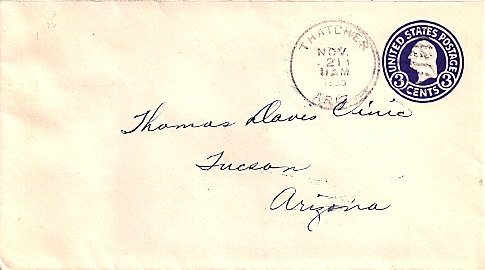 THATCHER
NOV.
21
11 AM
ARIZ.
UNITED STATES POSTAGE
3 CENTS 3
Thomas Davis Clinic
Tucson
Arizona